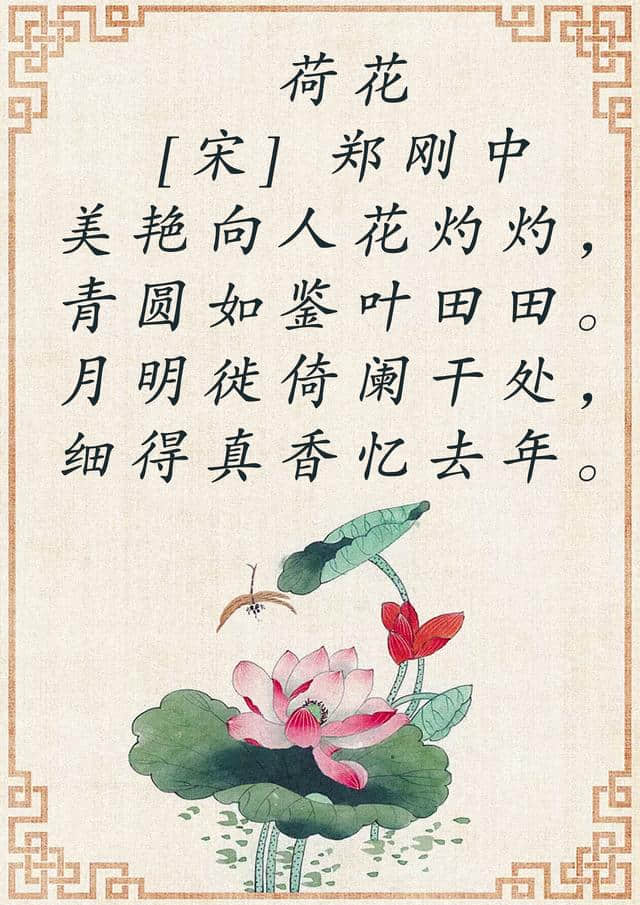 荷花
[宋] 郑刚中
美艳向人花灼灼，
青圆如鉴叶田田。
月明徙倚阑干处，
细得真香忆去年。